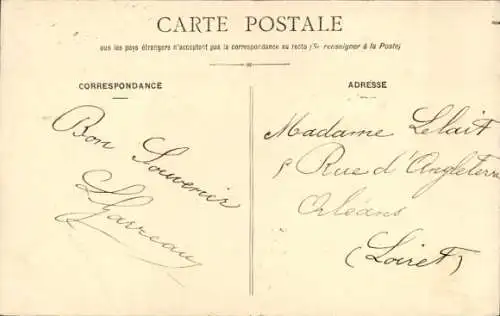 CARTE POSTALE
ous les pays étrangers n'acceptent pas la correspondance au recto (Se renseigner à la Poste)
CORRESPONDANCE
Bon Souvenir
ADRESSE
Madame Lelait
5 Rue d'Angleterre
Orléans
(Loiret)